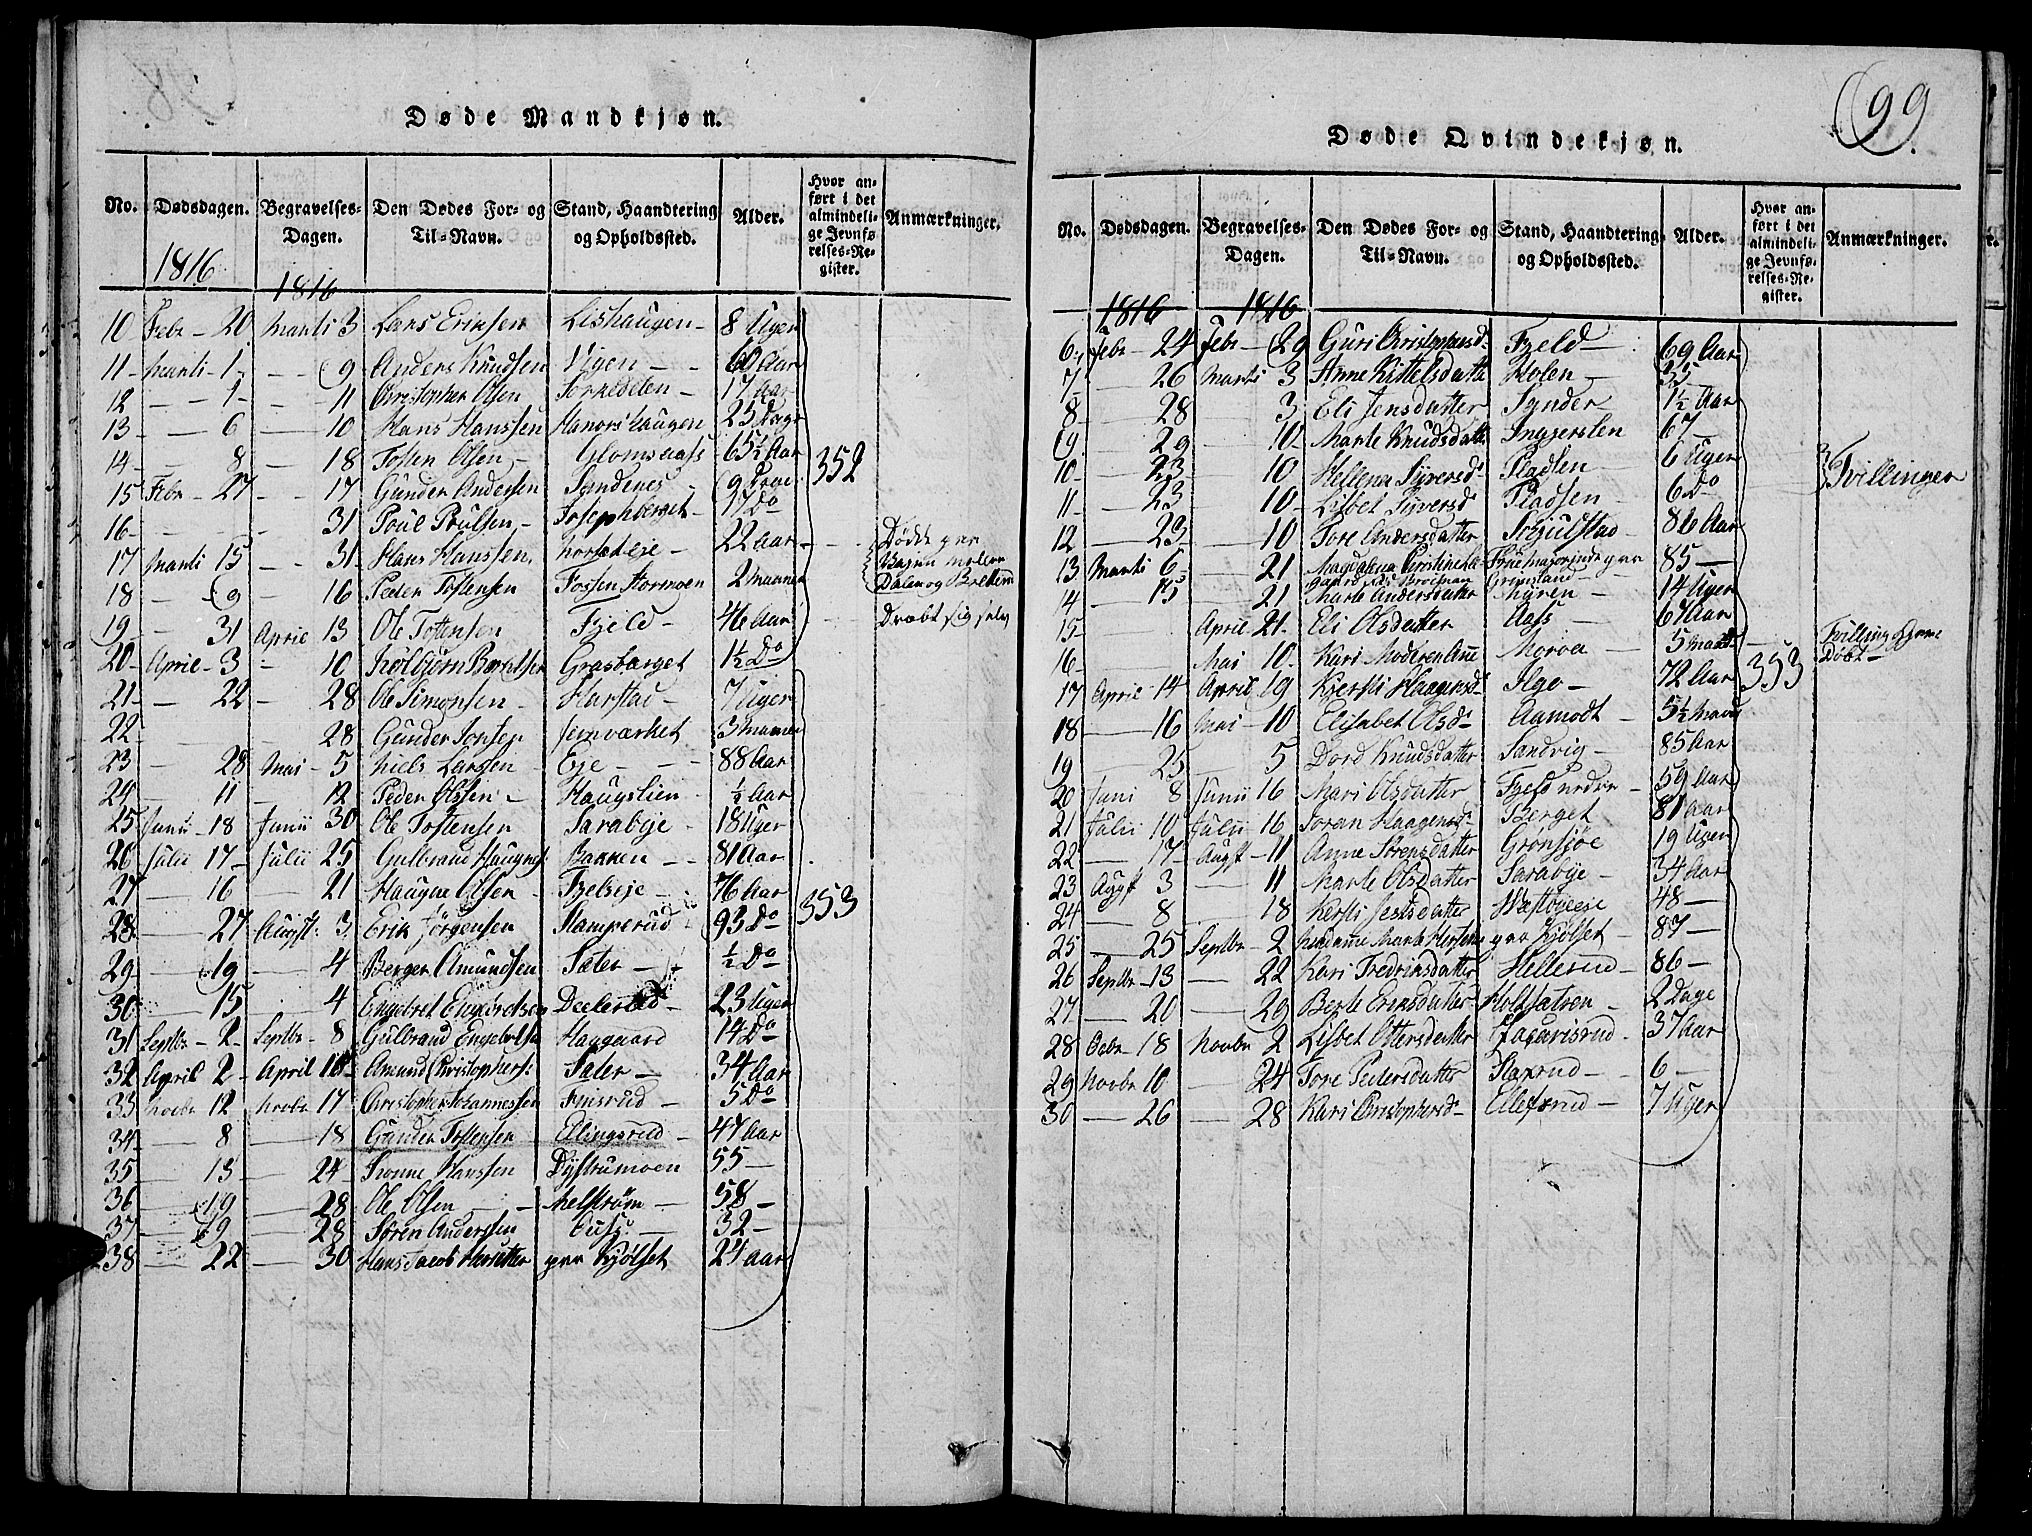 99
Døde Mandkjøn.
No. Dødsdagen. Begravelses-Dagen. Den Dødes For- og Til-Navn. Stand, Haandtering og Opholdssted. Alder. Hvor anført i det almindelige Jevnførelses-Register. Anmærkninger.
1816 1816
10 Febr - 20 Marti 3 Lars Eriksen Lishaugen - 8 Uger
11 Marti - 1 - 9 Anders Knudsen Vigen - 60 Aar
12 - 1 - 11 Christopher Olsen 17 Aar
13 - 6 - 10 Hans Hanssen 25 Dage
14 - 8 - 18 Tosten Olsen - Glomsaass 65½ Aar 352
15 Febr - 27 - 17 Gunder Andersen Sandenes 9
16 - 31 Poul Poulsen - Josephberget - 17 Do
17 Marti 15 31 Hans Hanssen Eje - 22 Aar Døde paa
18 - 9 - 16 Peder Tostensen Fossen Mormoen 2 Maaner
19 - 31 April 13 Ole Tostensen Fjeld - 46 Aar Dræbt sig selv
20 April - 3 - 10 Grasberget 1½ Do
21 - 22 - 28 Ole Simonsen - Harstad - 7 Uger
22 - 28 Gunder Jonsen Jernværket 3 Maaner
23 - 28 Mai - 5 Niels Larsen Eje - 88 Aar
24 - 11 - 12 Peder Olssen - Haugslien - ½ Aar
25 Junii - 18 Junii 30 Ole Tostensen Sarabye - 18 Uger
26 Julii 17 - Julii 25 Gulbrand Haugnes: Bakken - 81 Aar
27 - 16 - 21 Haagne Olsen - Fjelseje - 76 Aar 353
28 - 27 August: 3 Erik Jørgensen Kamperud 93 Do
29 - 19 - 4 Berger Amundsen Sæter - ½ Do
30 - 15 - 4 Engebret Engebretsen Deelerud - 23 Uger
31 Septbr - 2 - Septbr - 8 Gulbrand Engebretsen Haagaard 14 Do
32 April 2 - April 10 - Amund Christophers: Sæter - 34 Aar
33 Novbr 12 Novbr 17 Christopher Johannessen 5 Do
34 - 8 - 18 Gunder Tostensen Elingsrud - 47 Aar
35 - 13 - 24 - Hanssen Dystrumoen 55 -
36 - 19 - 28 Ole Olsen - Melstrøm - 58 -
37 - 19 - 28 Søren Andersen 32 -
38 - 22 - 30 Hans Jacob paa Kjølset 24 Aar
Døde Qvindekjøn.
No. Dødsdagen. Begravelses-Dagen. Den Dødes For- og Til-Navn. Stand, Haandtering og Opholdssted. Alder. Hvor anført i det almindelige Jevnførelses-Register. Anmærkninger.
1816 1816
6 Febr - 24 Febr - 29 Guri Christophersd: Fjeld - 69 Aar
7 - 26 Marti 3 Anne Kittelsdatter Holen - 35 -
8 - 28 3 Eli Jensdatter Synder - 1½ Aar
9 - 29 - 10 - Marte Knudsdatter 67 -
10 - 23 10 Hellena Syversd: Pladsen - 6 Uger Tvillinger
11 - 23 10 - Lisbet Syversd Pladsen - 6 Do
12 - 23 10 Tore Andersdatter Skjulstad - 86 Aar
13 Marti 6 - 21 Magdalena Christine Frue Majorinde paa Grimsland 85 -
14 - 15 - 21 Marte Andersdatter Myren - 14 Uger
15 - April - 21 - Eli Olsdatter Aass - 67 Aar
16 - Mai 10 - Kari Moroa - 5 Maan: 353
17 April - 14 April 19 Kjersti Haagensd: Ilgo - 72 Aar
18 - 16 Mai - 10 Elisabet Olsd: Aamodt - 5½ Maan
19 - 25 - 5 Dord Knudsdatter Sandvig - 85 Aar
20 Juni 8 Junii 16 Mari Olsdatter Fjeld nedre - 59 Aar
21 Julii 10 Julii 16 Joran Haagensd - Berget 81 Aar
22 - 17 - Augst - 11 Anne Sørensdatter Grønsjøe 19 Uger
23 Augst 3 - 11 Marte Olsdatter Sarabye - 34 Aar
24 - 8 - 18 Kersti Jensdatter 48 -
25 - 25 Septbr - 2 Madame Marte paa Kjølset - 87 -
26 Septbr - 13 - 22 Kari Fredriksdatter Hellerud - 86 -
27 - 20 - 29 Berte Eriksdatter Holtsætren - 2 Dage
28 Octbr - 18 Novbr 2 Lisbet Ottersdatter Zacarisrud - 37 Aar
29 Novbr 10 - 24 Tore Pedersdatter 6 -
30 - 26 - 28 Kari Christophersd - Ellefsrud - 7 Uger